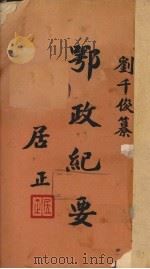 劉千俊纂
鄂政紀要
居正